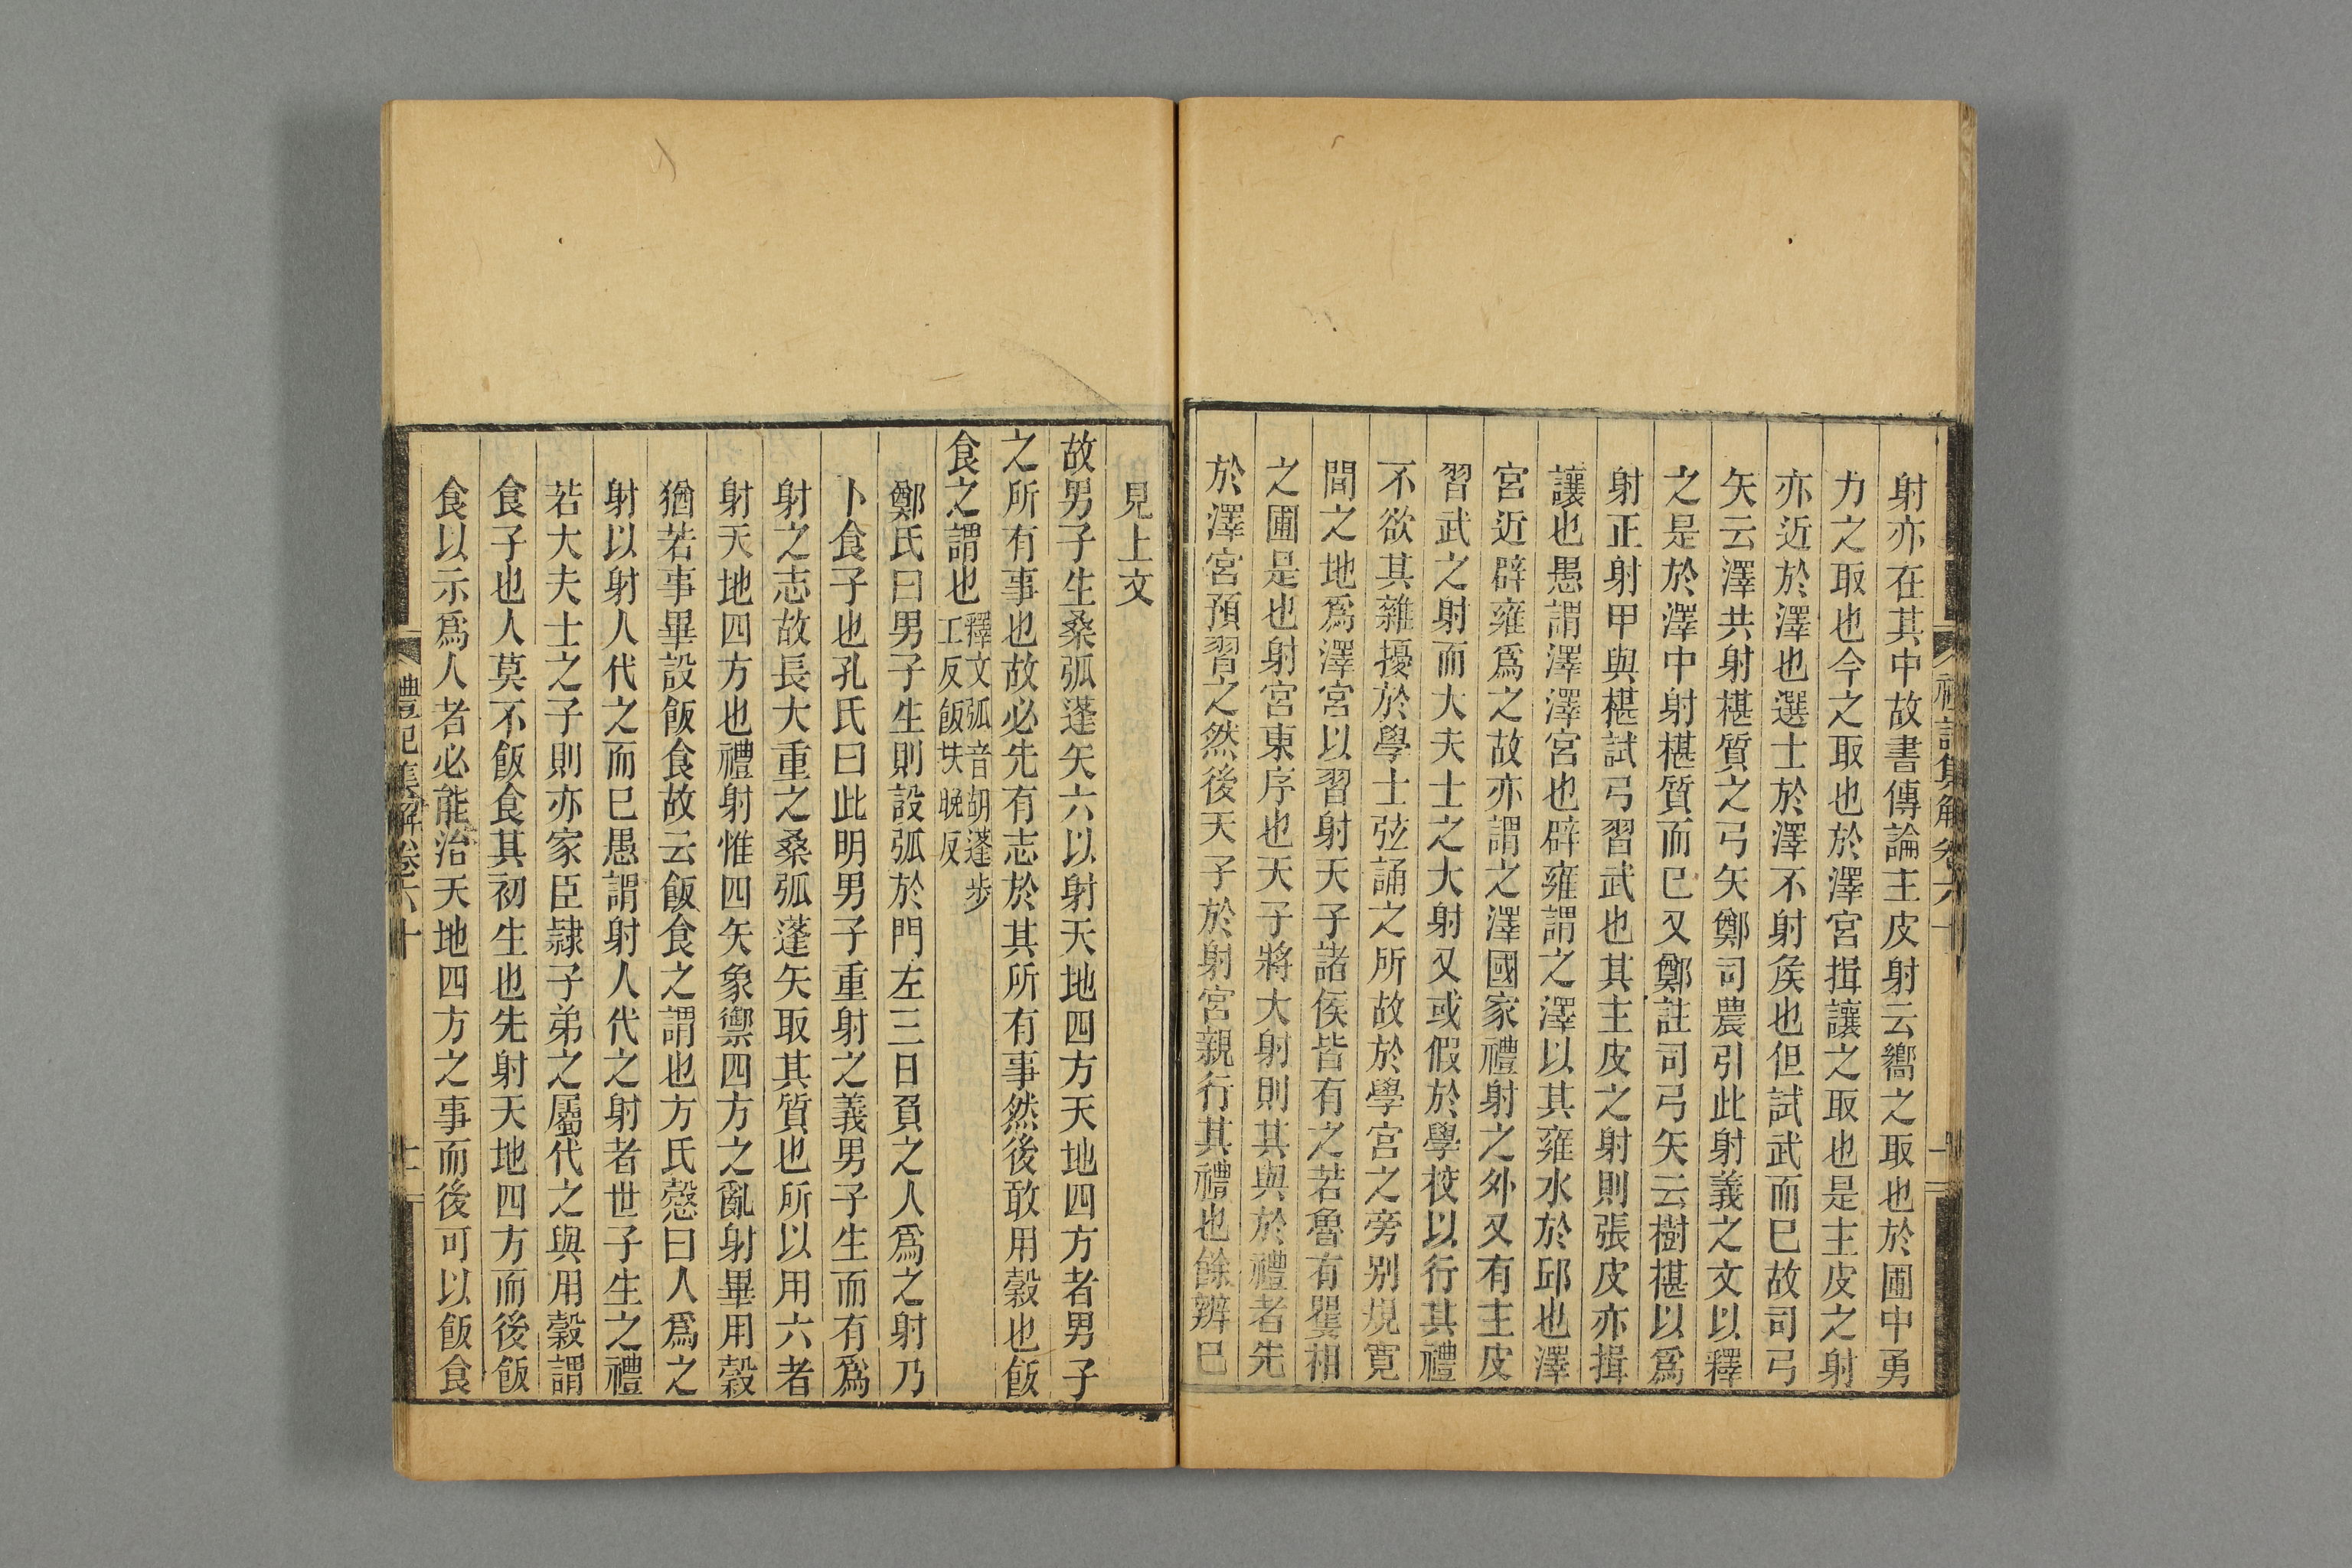 射亦在其中故書傳論主皮射云嚮之取也於圃中勇
力之取也今之取也於澤宮揖讓之取也是主皮之射
亦近於澤也選士於澤不射矦也但試武而已故司弓
矢云澤共射椹質之弓矢鄭司農引此射義之文以釋
之是於澤中射椹質而已又鄭註司弓矢云樹椹以爲
射正射甲與椹試弓習武也其主皮之射則張皮亦揖
讓也愚謂澤澤宮也辟雍謂之澤以其雍水於邱也澤
宮近辟雍爲之故亦謂之澤國家禮射之外又有主皮
習武之射而大夫士之大射又或假於學校以行其禮
不欲其雜擾於學士弦誦之所故於學宮之旁别規寬
間之地爲澤宮以習射天子諸侯皆有之若魯有矍相
之圃是也射宮東序也天子將大射則其與於禮者先
於澤宮預習之然後天子於射宮親行其禮也餘辨已
禮記集解卷六十
見上文
故男子生桑弧蓬矢六以射天地四方天地四方者男子
之所有事也故必先有志於其所有事然後敢用穀也飯
食之謂也釋文弧音胡蓬步工反飯扶晚反
鄭氏曰男子生則設弧於門左三日負之人爲之射乃
卜食子也孔氏曰此明男子重射之義男子生而有爲
射之志故長大重之桑弧蓬矢取其質也所以用六者
射天地四方也禮射惟四矢象禦四方之亂射畢用穀
猶若事畢設飯食故云飯食之謂也方氏慤曰人爲之
射以射人代之而已愚謂射人代之射者世子生之禮
若大夫士之子則亦家臣隷子弟之屬代之與用穀謂
食子也人莫不飯食其初生也先射天地四方而後飯
食以示爲人者必能治天地四方之事而後可以飯食
禮記集解卷六十
十一